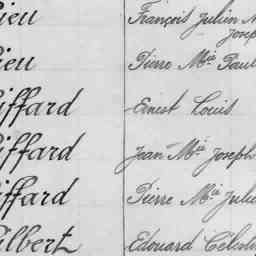 ieu François Julien
Joseph
ieu Pierre Mie Paul
iffard Ernest Louis
iffard Jean Mie Joseph
iffard Pierre Mie Julie
ilbert Edouard Célest